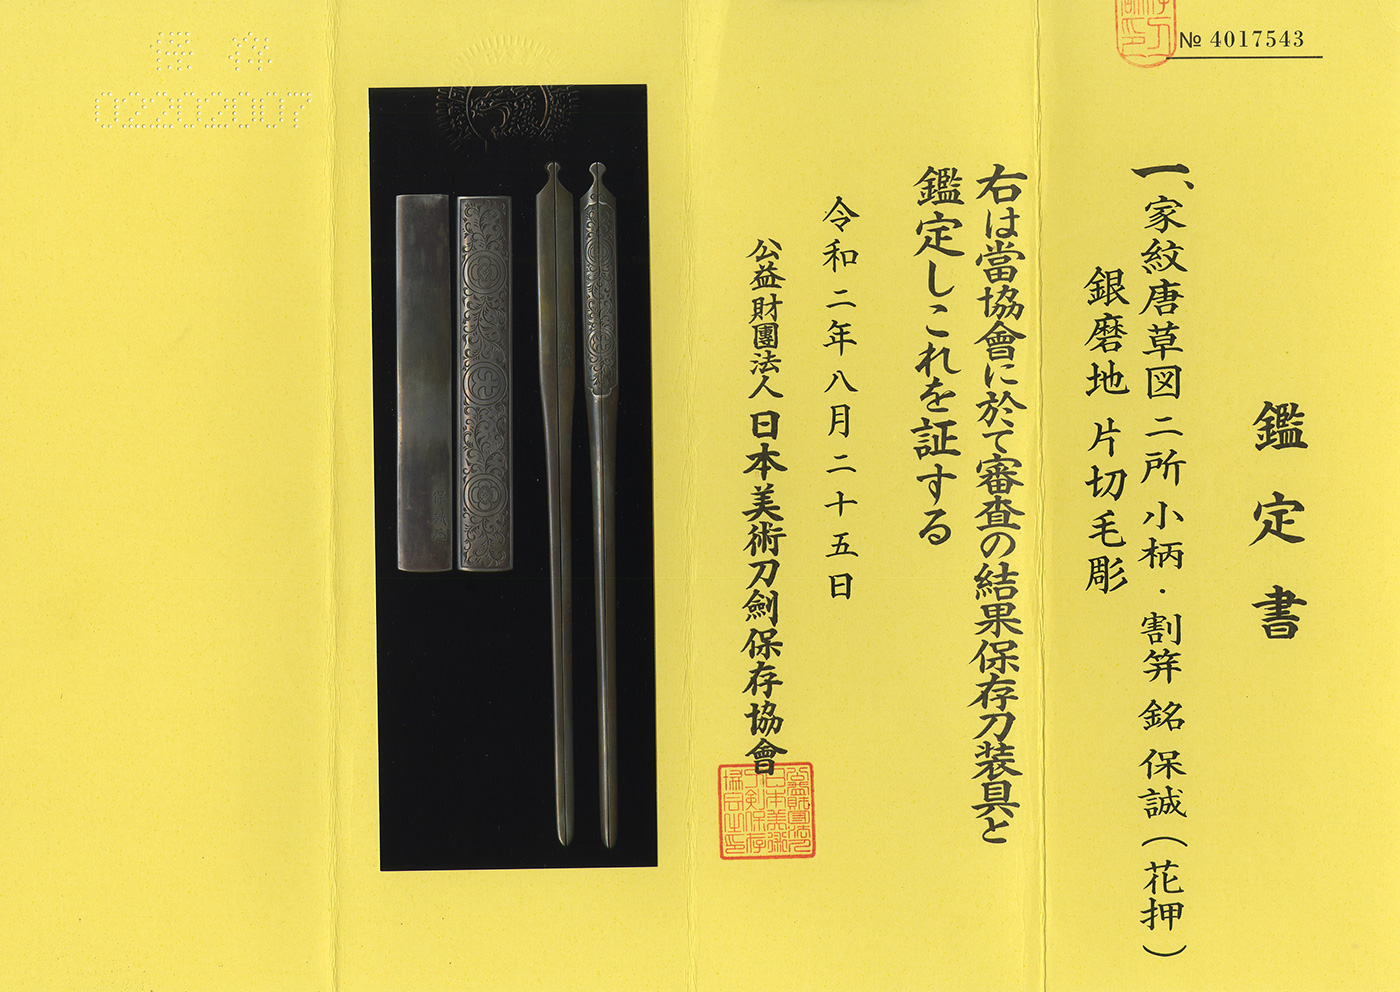 № 4017543
鑑定書
一、家紋唐草図二所小柄・割笄 銘 保誠(花押)
銀磨地 片切毛彫
右は當協會に於て審査の結果保存刀装具と
鑑定しこれを証する
令和二年八月二十五日
公益財團法人日本美術刀劍保存協會
公益財團法人日本美術刀剣保存協会之印
保存
02202007